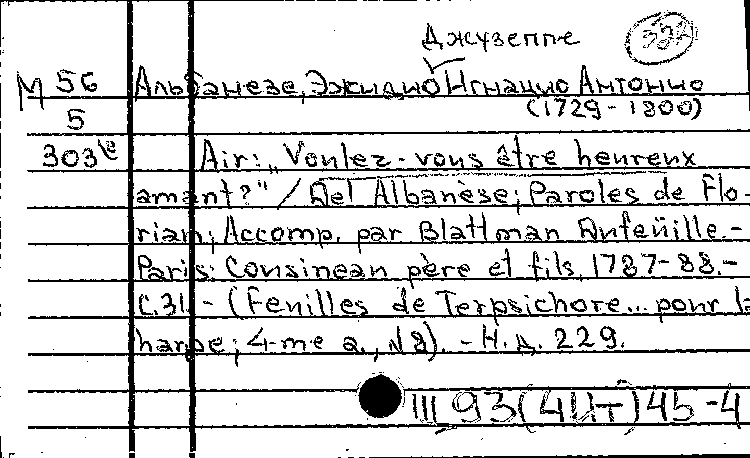 Джузеппе 332
М 56 Альбанезе, Эжидио Игнацио Антонио
5 (1729-1800)
303ᵉ Air: "Voulez-vous être heureux
amant?" / Del Albanèse; Paroles de Flo-
rian; Accomp. par Blattman Dufeüille.-
Paris: Cousineau père et fils, 1787-88.-
С.31.- (Feuilles de Terpsichore... pour la
harpe; 4-me a., №8). - Н.д. 229.
III 93(4Ит)45-4